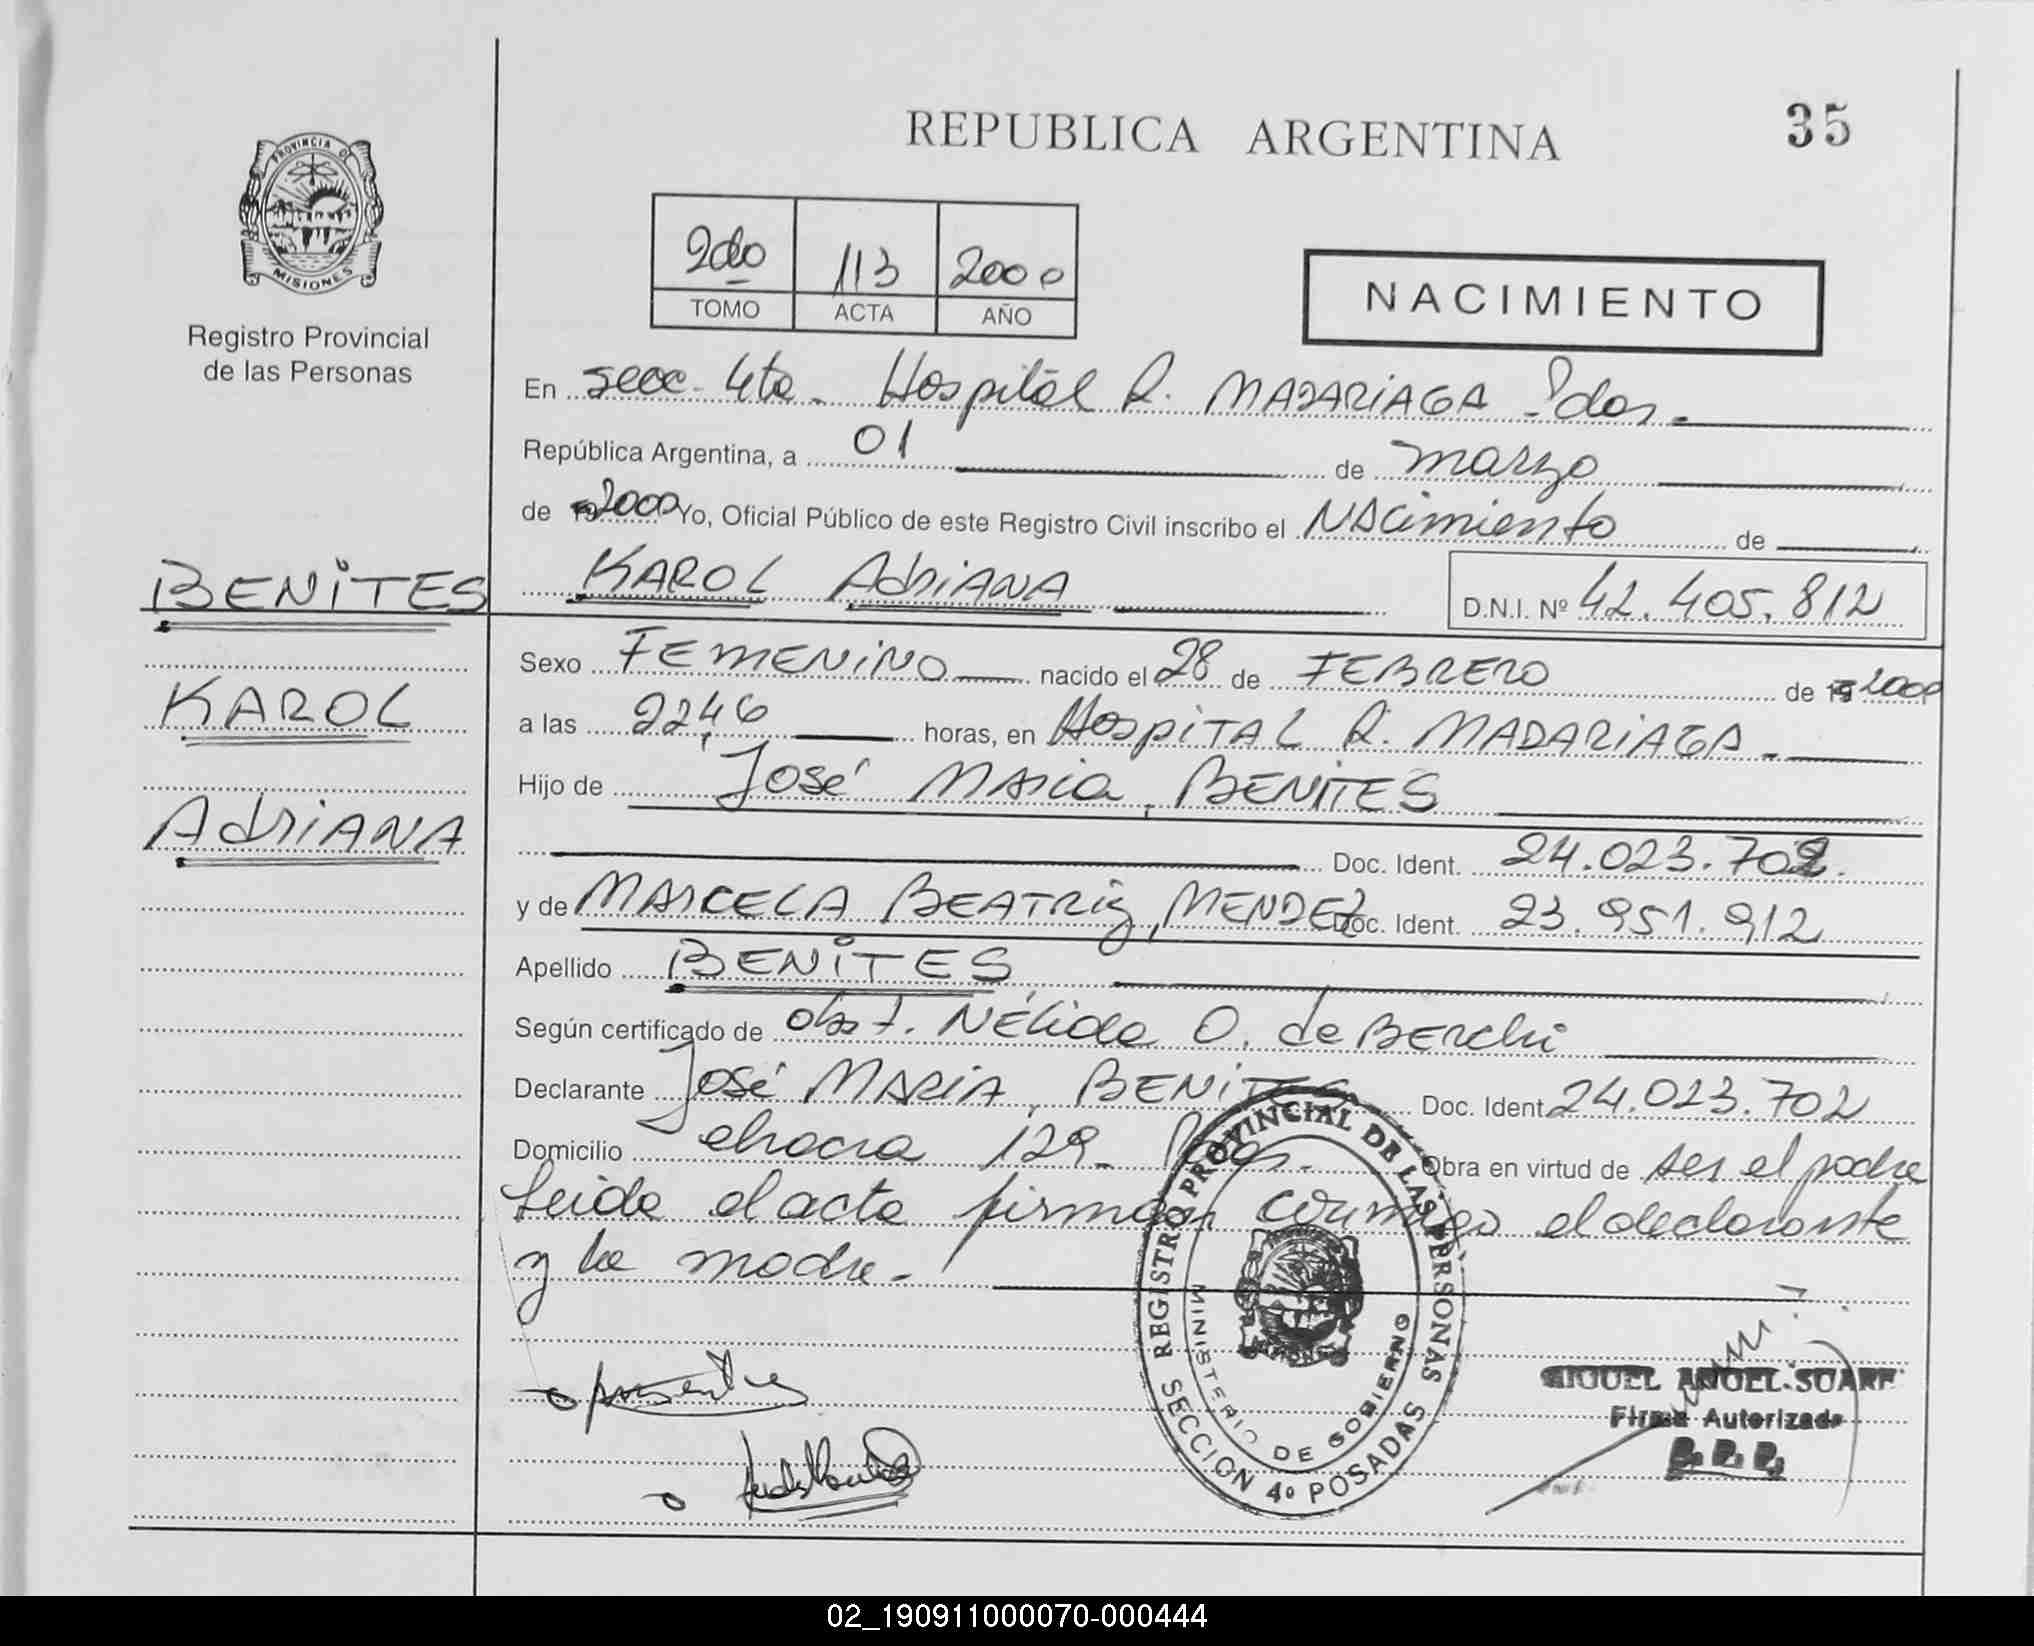 REPUBLICA ARGENTINA
35
PROVINCIA DE
MISIONES
Registro Provincial
de las Personas
2do 113 2000
TOMO ACTA AÑO
NACIMIENTO
En secc. 4ta. Hospital R. MADARIAGA Pdas.
República Argentina, a 01 de marzo
de 2000 Yo, Oficial Público de este Registro Civil inscribo el NAcimiento de
KAROL AdriANA
D.N.I. Nº 42.405.812
BENITES
KAROL
AdriANA
Sexo FEMENINO nacido el 28 de FEBRERO de 19 2000
a las 22,46 horas, en HospiTAL R. MADARIAGA.
Hijo de José MAria, BENITES
Doc. Ident. 24.023.702.
y de MARCELA BEATRiz, MENDEZ Doc. Ident. 23.951.912
Apellido BENITES
Según certificado de obst. NÉlida O. de BERchi
Declarante José MARIA, BENITES Doc. Ident. 24.023.702
Domicilio chacra 129. Pdas. Obra en virtud de ser el padre
Leida el acta firman conmigo el declarante
y la madre.
REGISTRO PROVINCIAL DE LAS PERSONAS
MINISTERIO DE GOBIERNO
SECCION 4º POSADAS
MIGUEL ANGEL SUAREZ
Firma Autorizada
R.P.P.
02_190911000070-000444